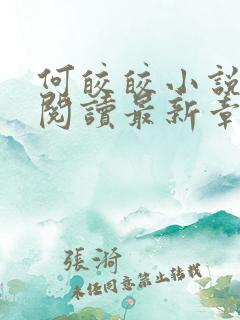 何皎皎小說
閱讀最新章
張漪
未經同意禁止轉載